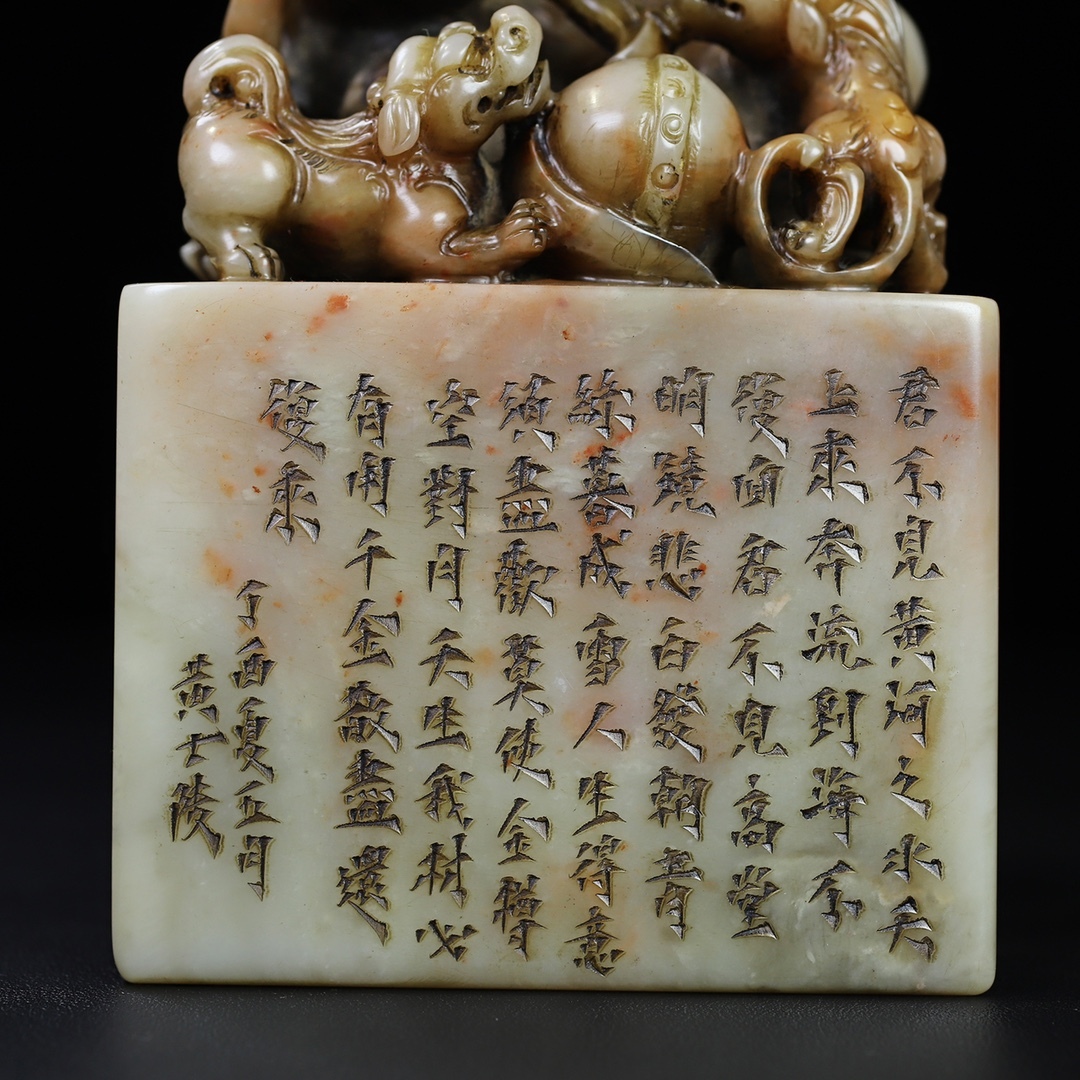 君不見黃河之水天
上來奔流到海不
復回君不見高堂
明鏡悲白發朝青
絲暮成雪人生得意
須盡歡莫使金樽
空對月天生我材必
有用千金散盡還
復來
丁酉夏五月
黃士陵